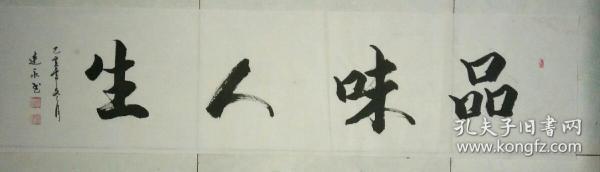 品味人生
建永书
孔夫子旧书网
www.kongfz.com